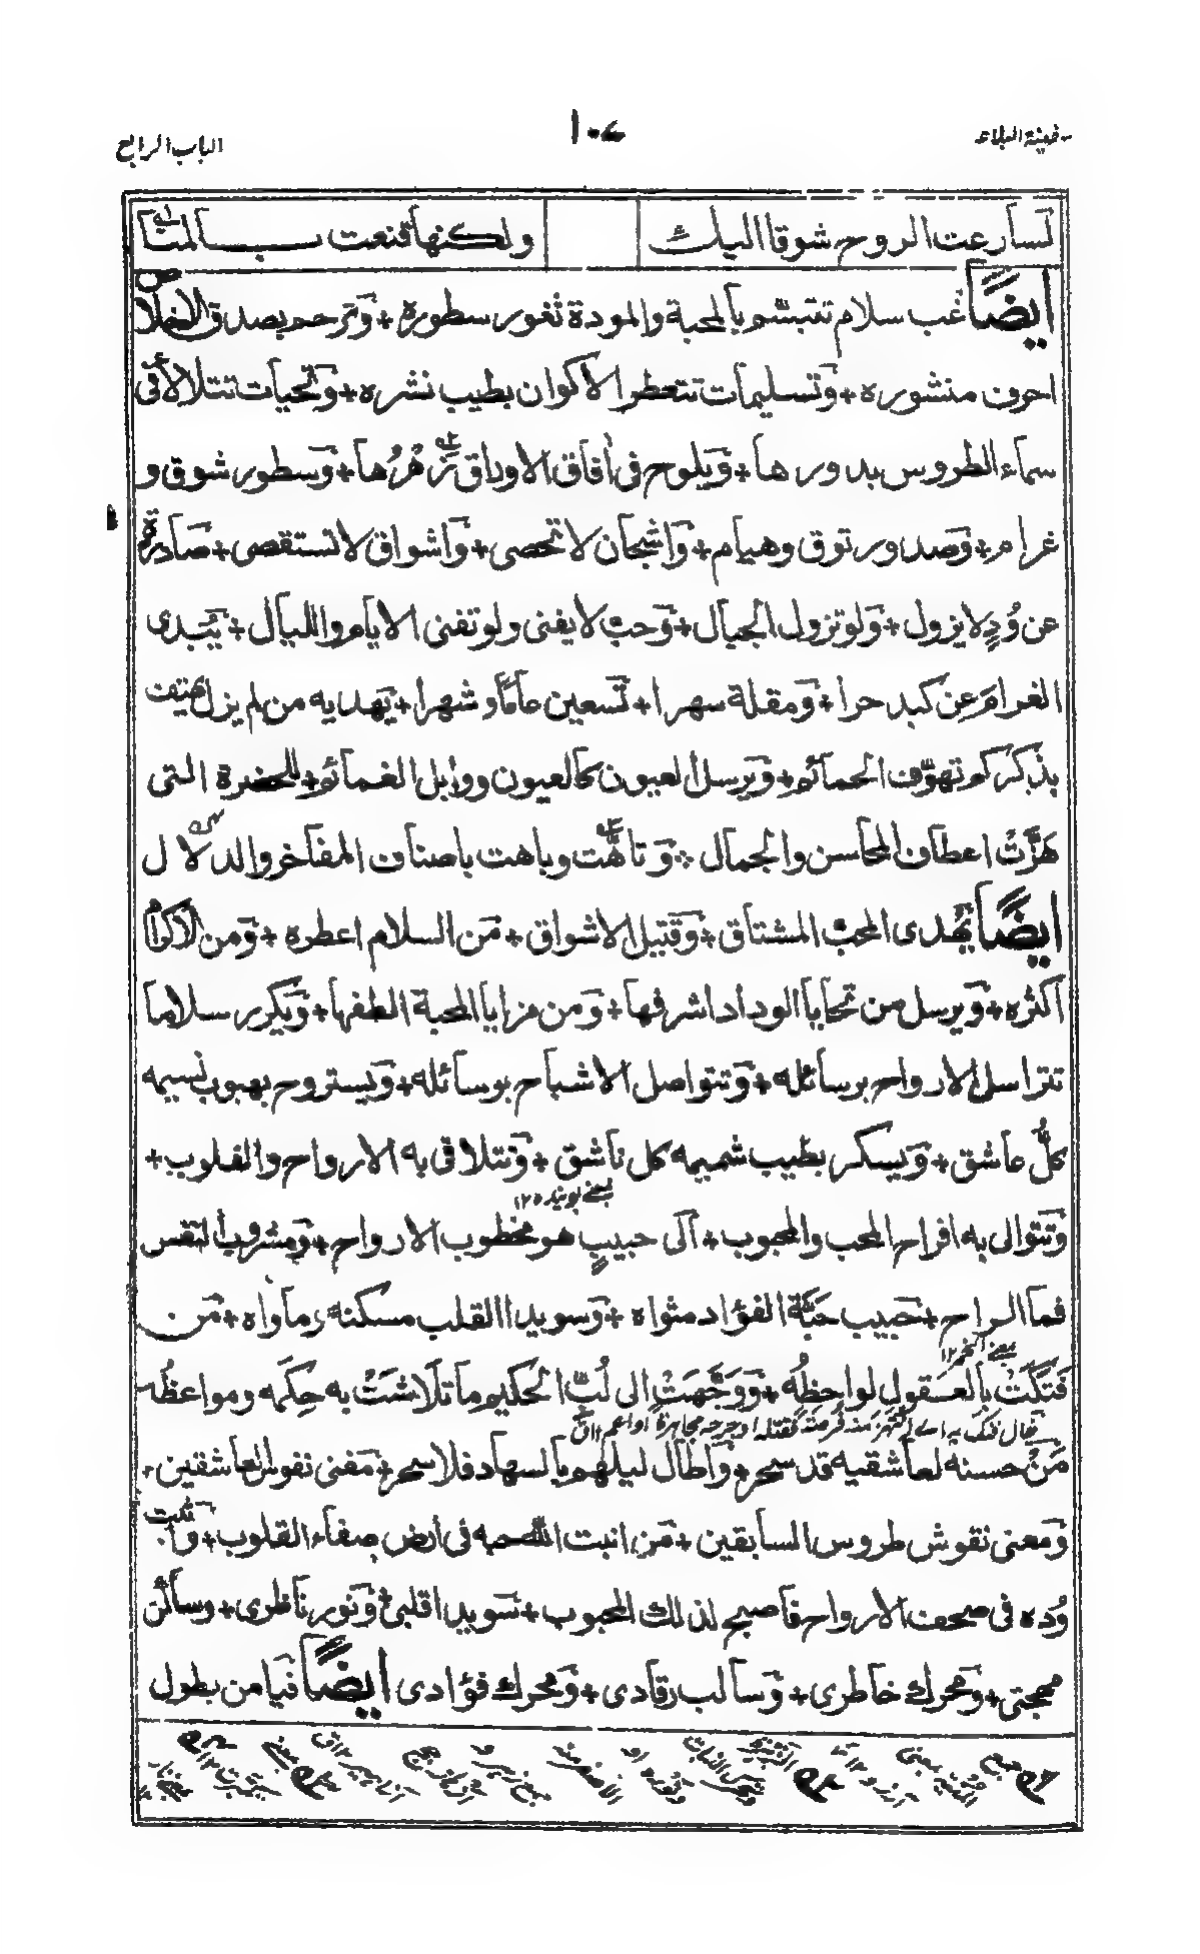 سفينة البلاغة
١٠٧
الباب الرابع
لسارعت الروح شوقا اليك ولكنها قنعت بالمنا
ايضًا غب سلام تتبسم بالمحبة والمودة ثغور سطوره + وَترحم بصدق الاخلاص
احرف منشوره + وَتسليمات تتعطر الاكوان بطيب نشره + وَتحيات تتلالأ في
سماء الطروس بدورها + وَيلوح في أفاق الاوراق زَهْرُها + وَسطور شوق و
غرام + وَصدور توق وهيام + وَاشجان لا تحصى + وَاشواق لا تستقصى + صَادرة
عن وُدٍ لا يزول + وَلو تزول الجبال + وَحب لا يفنى ولو تفنى الايام والليال + يَبدى
الغرام عن كبد حرا + وَمقلة سهرا + تَسعين عامًا و شهرا + يَهديه من لم يزل هتيف
بذكركم تهوّف الحمائم + وَيرسل العبون كالعيون ووابل الغمائم + للحضرة التى
هَزَّتْ اعطاف المحاسن والجمال + وَتاهَت وباهت باصناف المفاخر والدلال
ايضًا يَهدى المحب المشتاق + وَقتيل الاشواق + مَن السلام اعطره + وَمن الاكرام
اكثره + وَيرسل من تحايا الوداد اشرفها + وَمن مزايا المحبة الطفها + وَيكرر سلاما
تتراسل الارواح برسائله + وَتتواصل الاشباح بوسائله + وَيستروح بهبوب نسيمه
كلُّ عاشق + وَيسكر بطيب شميمه كل ناشق + وَتتلاقى به الارواح والقلوب +
يعنے بوينده ١٢
وَتتوالى به افراح المحب والمحبوب + اَلى حبيبٍ هو مخطوب الارواح + وَمشروب النفس
فما الراح + حَبيب حَبّة الفؤاد مثواه + وَسويدا القلب مسكنه وماواه + مَن
فَتَكَتْ بالعقول لواحظُه + وَوَجَّهَتْ الى لُبّ الحكيم ما تلاشَتْ به حِكَمه ومواعظُه
يقال فتك به اے انتهز منه فرصة فقتله او جرحه مجاهرة او اعم ١٢ ق
مَن حسنه لعاشقيه قد سحر + وَاطال ليلهم بالسهاد فلا سحر + مَفنى نفوس العاشقين +
وَمعنى نقوش طروس السابقين + مَن انبت الله حبه في ارض صفاء القلوب + واثبت
وُده في صحف الارواح فاصبح لذلك المحبوب + سَويدا قلبي وَنور ناظرى + وساكن
مهجتى + وَمحرك خاطرى + وَسالب رقادى + وَمحرك فؤادى ايضًا فيا من بطول